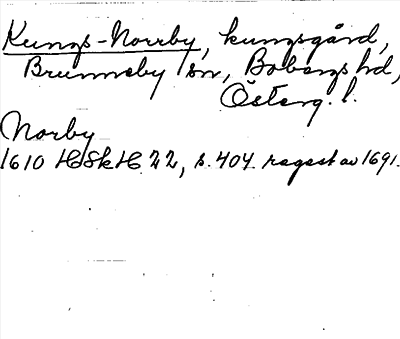 Kungs-Norrby, kungsgård,
Brunneby sn, Bobergs hd,
Österg. l.
Norby
1610 HSkH 22, s. 404. ragast av 1691.